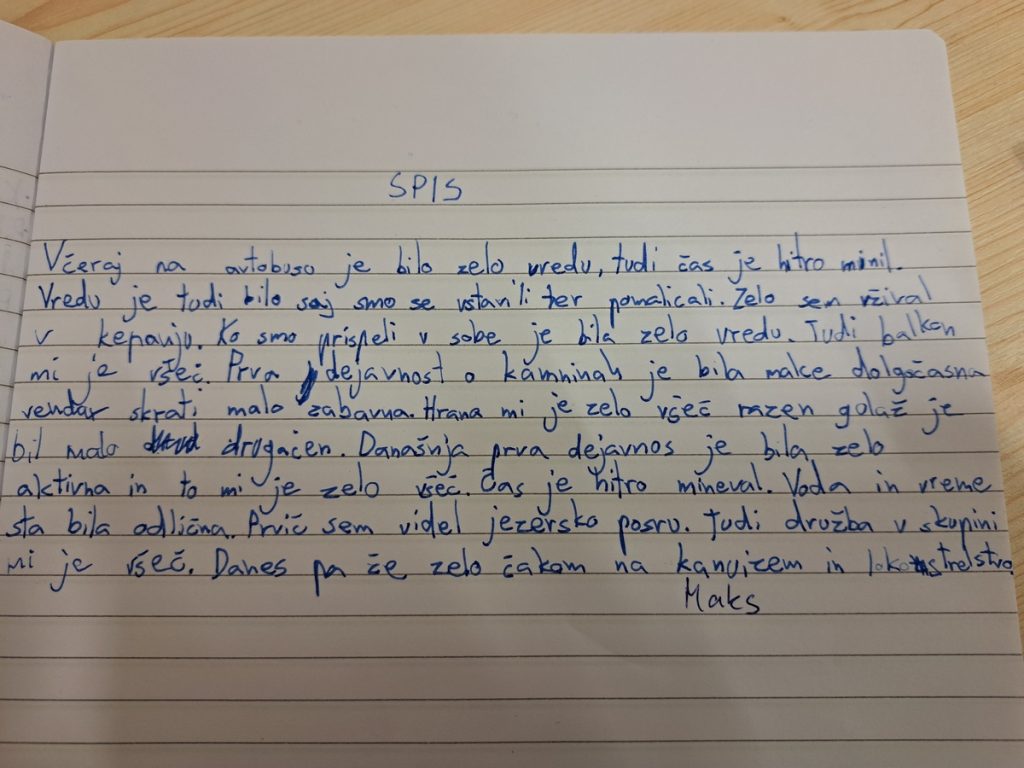 SPIS
Včeraj na avtobuso je bilo zelo vredu, tudi čas je hitro minil.
Vredu je tudi bilo saj smo se vstavili ter pomalicali. Zelo sem vžival
v kepanju. Ko smo prispeli v sobe je bila zelo vredu. Tudi balkon
mi je všeč. Prva dejavnost o kamninah je bila malce dolgočasna
vendar skrati malo zabavna. Hrana mi je zelo všeč razen golaž je
bil malo drugačen. Današnja prva dejavnos je bila zelo
aktivna in to mi je zelo všeč. Čas je hitro mineval. Voda in vreme
sta bila odlična. Prvič sem videl jezersko posrv. Tudi družba v skupini
mi je všeč. Danes pa če zelo čakam na kanuizem in lokostrelstvo.
Maks